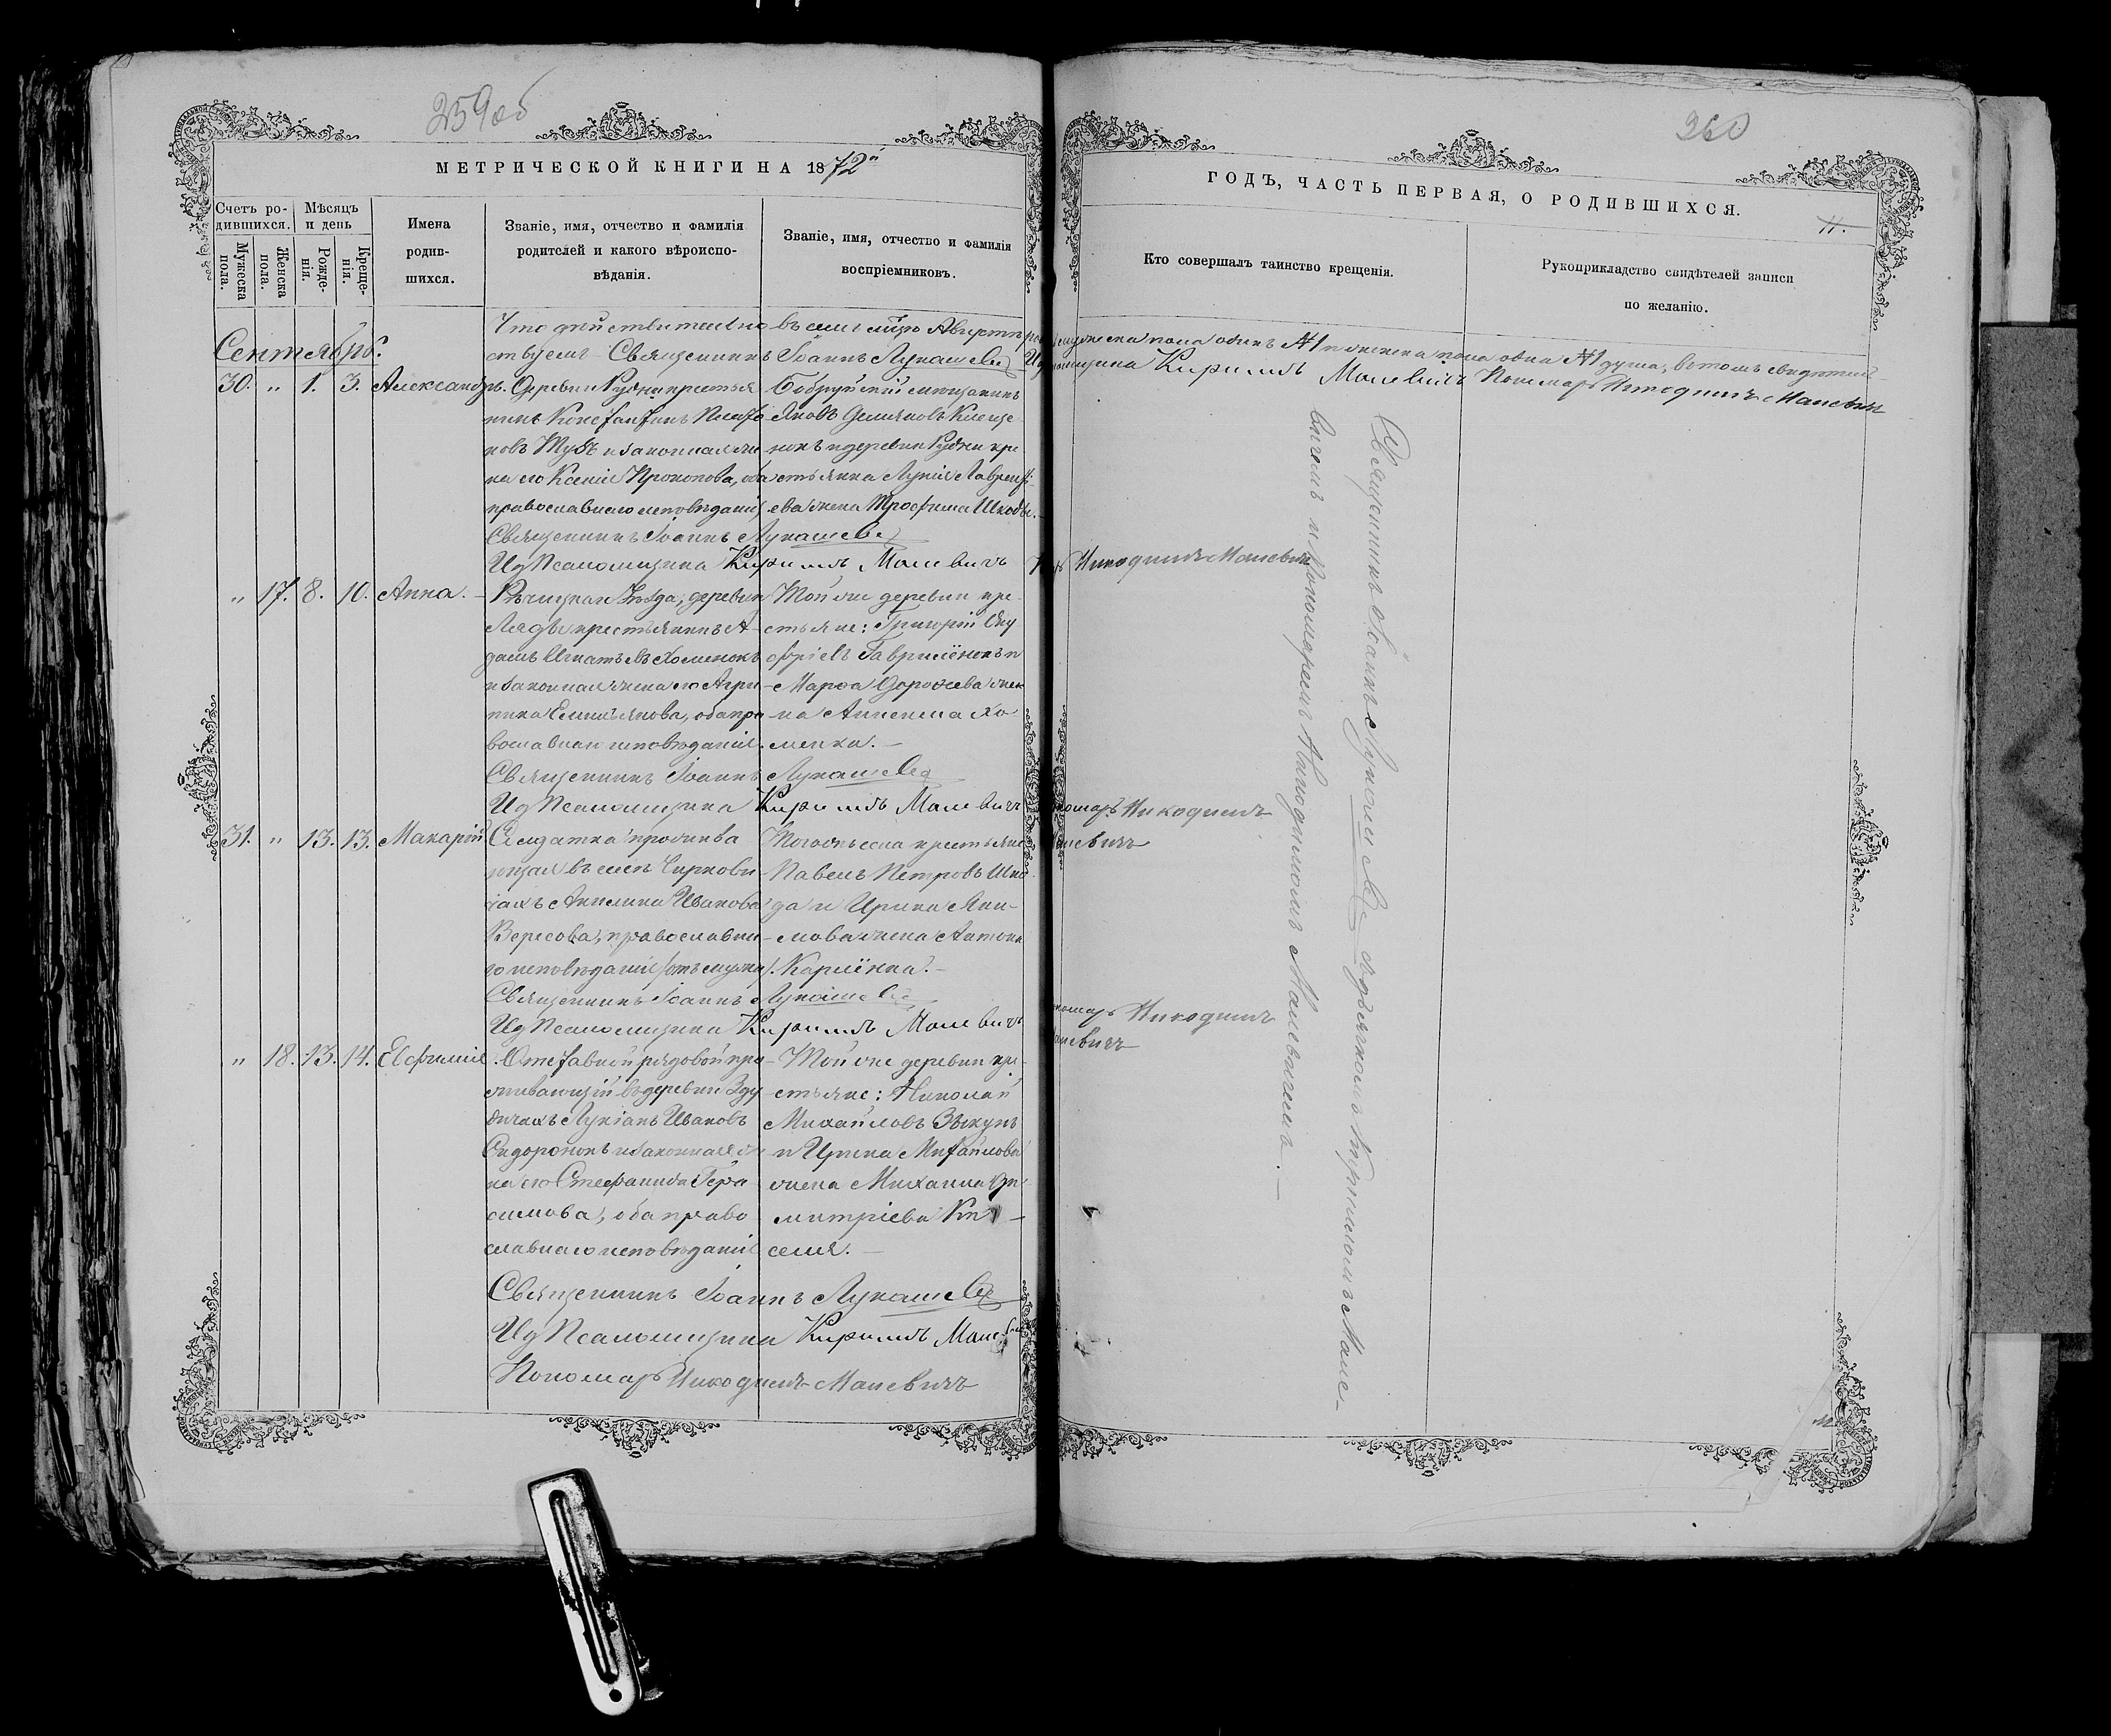 259об
МЕТРИЧЕСКОЙ КНИГИ НА 1872й
Счетъ ро-
дившихся.
Мѣсяцъ
и день
Мужеска
пола.
Женска
пола.
Рожде-
нія.
Креще-
нія.
Имена
родив-
шихся.
Званіе, имя, отчество и фамилія
родителей и какого вѣроиспо-
вѣданія.
Званіе, имя, отчество и фамилія
воспріемниковъ.
Что дѣйствительно въ семъ мцѣ Августѣ
Сентябрь.
ствуемъ Священникъ Іоаннъ Лукашевъ
30. „ 1. 3. Александръ.
Деревни Рудни крестья
нинъ Константинъ
новъ и законная же
на его Ксенія Прокопова, оба
православнаго исповѣданія
Бобруйскій мещанинъ
Яковъ Демяновъ Клеще
нокъ и деревни Рудни кре
стьянка Лукія Лавренті-
ева жена Трофима Шкоды.
Священникъ Іоаннъ Лукашевъ
Ид Псаломщика Кирилъ Малевичъ
„ 17. 8. 10. Анна.
Рѣчицкаго Уѣзда, деревни
Ляды крестьянинъ А-
дамъ Игнатьевъ Хоменокъ
и законная жена его Агри-
пина Емильянова, оба пра
вославнаго исповѣданія.
Той же деревни кре-
стьяне: Григорій Ону
фріевъ Гаврилёнокъ и
Марѳа Дороѳеева жен
на Алексея Хо
менка. —
Священникъ Іоаннъ Лукашевъ
Ид Псаломщика Кирилъ Малевичъ
31. „ 13. 13. Макарій
Солдатка прожива
ющая въ селѣ Чиркови
чахъ Акилина Иванова
Вересова, православна
го исповѣданія
Тогожъ села крестьяне
Павелъ Петровъ Шко
да и Ирина Яки-
мова жена Антона
Карпёнка. —
Священникъ Іоаннъ Лукашевъ
Ид Псаломщика Кирилъ Малевичъ
„ 18. 13. 14. Евфимія.
Отставной рядовой про-
живающій въ деревни Зду
дичахъ Лукіанъ Ивановъ
Сидоронокъ и законная же
на его Стефанида Гера
симова, оба право
славнаго исповѣданія
Той же деревни кре-
стьяне: Николай
Михайловъ Зыкунъ
и Ирина Михайлова
жена Михаила Ди
митріева Ки
селя. —
Священникъ Іоаннъ Лукашевъ
Ид Псаломщика Кирилъ Малевичъ
Пономарь Никодимъ Малевичъ
260
ГОДЪ, ЧАСТЬ ПЕРВАЯ, О РОДИВШИХСЯ.
11.
Кто совершалъ таинство крещенія.
Рукоприкладство свидѣтелей записи
по желанію.
мужеска пола одинъ №1 и женска пола одна №1 душа, в томъ свидѣтель-
Псаломщика Кирилъ Малевичъ Пономарь Никодимъ Малевичъ
Никодимъ Малевичъ
Пономарь Никодимъ
Малевичъ
Пономарь Никодимъ
Малевичъ
Священникъ Іоаннъ Лукашевъ съ дьячкомъ Кириломъ Мале-
вичемъ и Пономаремъ Никодимомъ Малевичемъ. —